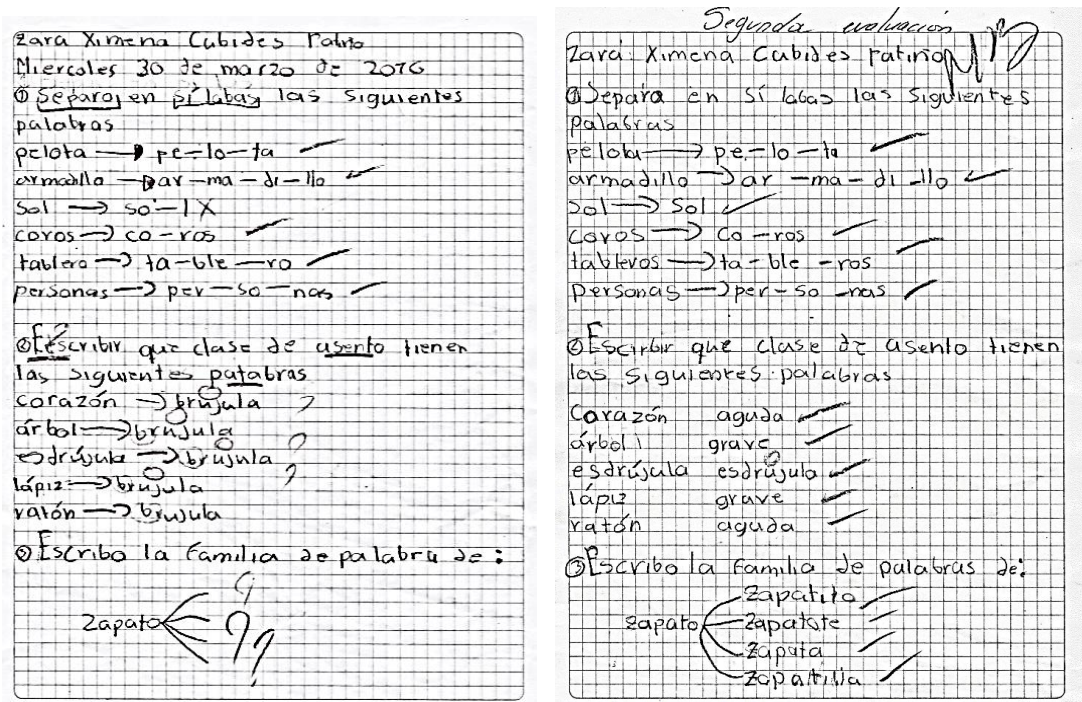 Zara Ximena Cubides Patiño
Miercoles 30 de marzo de 2016
① Separo, en sílabas las siguientes
palabras
pelota → pe-lo-ta
armadillo → ar-ma-di-llo
Sol → so-l X
coros → co-ros
tablero → ta-ble-ro
personas → per-so-nas
② Escribir que clase de asento tienen
las siguientes palabras
corazón → brújula ?
árbol → brujula
esdrújula → brujula ?
lápiz → brujula ?
ratón → brujula
③ Escribo la familia de palabra de:
zapato
? ? ?
Segunda evaluación
Zara Ximena Cubides Patiño
① Separa en sílabas las siguientes
palabras
pelota → pe-lo-ta
armadillo → ar-ma-di-llo
Sol → Sol
coros → co-ros
tableros → ta-ble-ros
personas → per-so-nas
② Escirbir que clase de asento tienen
las siguientes palabras
Corazón aguda
árbol grave
esdrújula esdrújula
lápiz grave
ratón aguda
③ Escribo la familia de palabras de:
zapatito
zapato zapatote
zapata
zapaltilla